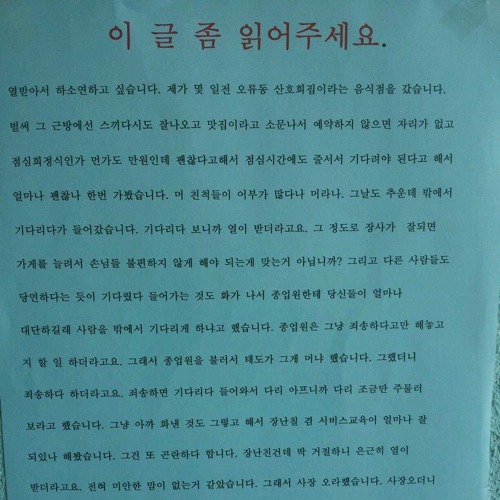 이 글 좀 읽어주세요.
열받아서 하소연하고 싶습니다. 제가 몇 일전 오류동 산호회집이라는 음식점을 갔습니다.
벌써 그 근방에선 스끼다시도 잘나오고 맛집이라고 소문나서 예약하지 않으면 자리가 없고
점심회정식인가 먼가도 만원인데 괜찮다고해서 점심시간에도 줄서서 기다려야 된다고 해서
얼마나 괜찮나 한번 가봤습니다. 머 친척들이 어부가 많다나 머라나. 그날도 추운데 밖에서
기다리다가 들어갔습니다. 기다리다 보니까 열이 받더라고요. 그 정도로 장사가 잘되면
가게를 늘려서 손님들 불편하지 않게 해야 되는게 맞는거 아닙니까? 그리고 다른 사람들도
당연하다는 듯이 기다렸다 들어가는 것도 화가 나서 종업원한테 당신들이 얼마나
대단하길래 사람을 밖에서 기다리게 하냐고 했습니다. 종업원은 그냥 죄송하다고만 해놓고
지 할 일 하더라고요. 그래서 종업원을 불러서 태도가 그게 머냐 했습니다. 그랬더니
죄송하다 하더라고요. 죄송하면 기다리다 들어와서 다리 아프니까 다리 조금만 주물러
보라고 했습니다. 그냥 아까 화낸 것도 그렇고 해서 장난칠 겸 서비스교육이 얼마나 잘
되있나 해봤습니다. 그건 또 곤란하다 합니다. 장난친건데 딱 거절하니 은근히 열이
받더라고요. 전혀 미안한 맘이 없는거 같았습니다. 그래서 사장 오라했습니다. 사장오더니